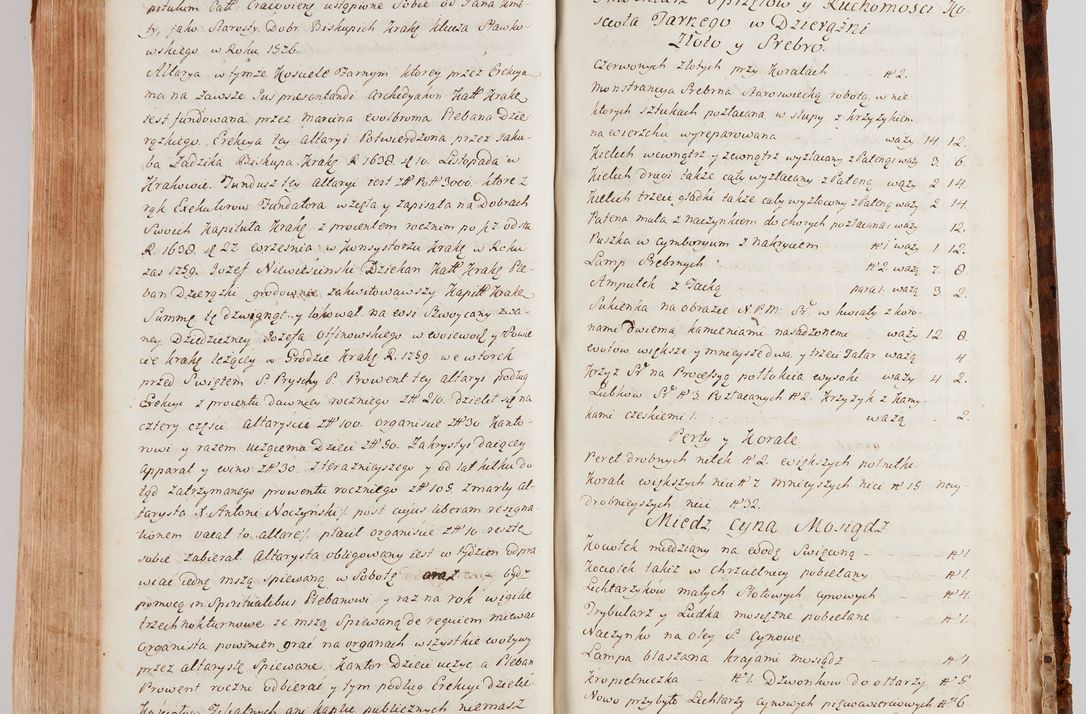 pitulum Cath. Cracoviens. ustąpione Sobie od Jana
ty, jako Starosty Dobr Biskupich Krakg klucza Sławko
wskiego w Roku 1526.
Altarya w tymże Kosciele Farnym ktorey przez Erekcya
ma na zawsze Jus praesentandi Archidyakon Katt Krakg
iest fundowana przez Marcina Wolbroma Plebana Dzie
rązkiego. Erekcya tey altaryi Potwierdzona przez Jaku
ba Zadzika Biskupa Krakg R. 1638. d 10. Listopada w
Krakowie. Fundusz tey altaryi iest zł Pol 3000. ktore z
rąk Exekutorow Fundatora wzęta y zapisała na Dobrach
Swoich Kapituła Krakg z procentem rocznim po 7 od sta
R. 1638. d 27. września w Konsystorzu Krakg w Roku
zas 1759. Jozef Niewiesinski Dziekan Katt Krakg Ple-
ban Dzierązki grodownie zakwitowawszy Kapitt Krakg
Summę tę dzwignął y lokował na wsi Szwoycany zwa-
ney Dziedziczney Jozefa Otfinowskiego w woiewod y Powie
cie Krakg leżącey w Grodzie Krakg R. 1759. we wtorek
przed Swiętem S. Pryschy P. Prowent tey altaryi podług
Erekcyi z procentu dawney rocznego zł 210. dzieleł się na
cztery części. altaryscie zł 100. organiscie zł 30. Kanto-
rowi y razem uczącemu Dzieci zł 50. Zakrystyi daiącey
apparat y wino zł 30. z teraznieyszego y od lat kilku do
tąd zatrzymanego prowentu rocznego zł 105. zmarły al-
tarysta X. Antoni Noczynski /: post cujus liberam resigna
tionem vacat to altare :/ płacił organiscie zł 10. resztę
sobie zabierał. Altarysta obligowany iest w tydzien odpra
wiac iednę mszą spiewaną w Sobotę oraz bydz
pomocą in Spiritualibus Plebanowi y raz na rok wigilie
trzech nokturnowe ze mszą Spiewaną de requiem miewac
Organista powinien grać na organach wszystkie wotywy
przez altarystę Spiewane. Kantor Dzieci uczyc, a Pleban
Prowent roczni odbierać y tym podług Erekcyi dzielić
Kosciołow Filialnych ani kaplic publicznych niemasz
Sprzętow y Ruchomosci Ko-
scioła Farnego w Dzierążni
Złoto y Srebro.
Czerwonych złotych przy Koralach - N 2.
Monstrancya Srebrna Staroswiecką robotą, w nie
ktorych sztukach pozłacana w słupy z krzyżykiem
na wierzchu wyreparowana waży 14 12.
Kielich wewnątrz y zewnątrz wyzłacany z Pateną waży 3 6
Kielich drugi także cały wyzłacany z Pateną waży 2 14.
Kielich trzeci gładki także cały wyzłocony z Pateną waży 2 14
Patena mała z naczynkiem do chorych pozłacana waży 12.
Puszka w cymboryum z nakryciem N 1 waży 1 12.
Lamp Srebrnych N 2. ważą 7 8
Ampułek z Tacką para 1. ważą 3 2.
Sukienka na obrazie N.P.M: Sr. w kwiaty z koro-
nami dwiema kamieniami nasadzonemi waży 12 8
wotow większe y mnieysze dwa y trzeci Talar ważą 4
Krzyż Sr. na Processyą połtokcia wysoki waży 4 2.
Lubkow Sr. N 3. Pozłacanych N 2. Krzyżyk z Kamy
kami czeskiemi 1. ważą . 2.
Perły y Korale
Pereł drobnych nitek N 2. większych połnitki.
Korale większych nici N 7. mnieyszych nici N 15. nay-
drobnieyszych nici N 32.
Miedz Cyna Mosiądz
Kociołek miedziany na wodę Swięconą - N 1
Kociołek także w chrzcielnicy pobielany N 1.
Lichtarzykow małych Stołowych cynowych N 4.
Trybularz y Łudka mosiężne pobielane N 1.
Naczynko na oley S. Cynowe
Lampa blaszana krajami mosiądz N 1
Kropielniczka N 1. Dzwonkow do ołtarzy N 5
Nowo przybyło Lichtarzy cynowych N 6